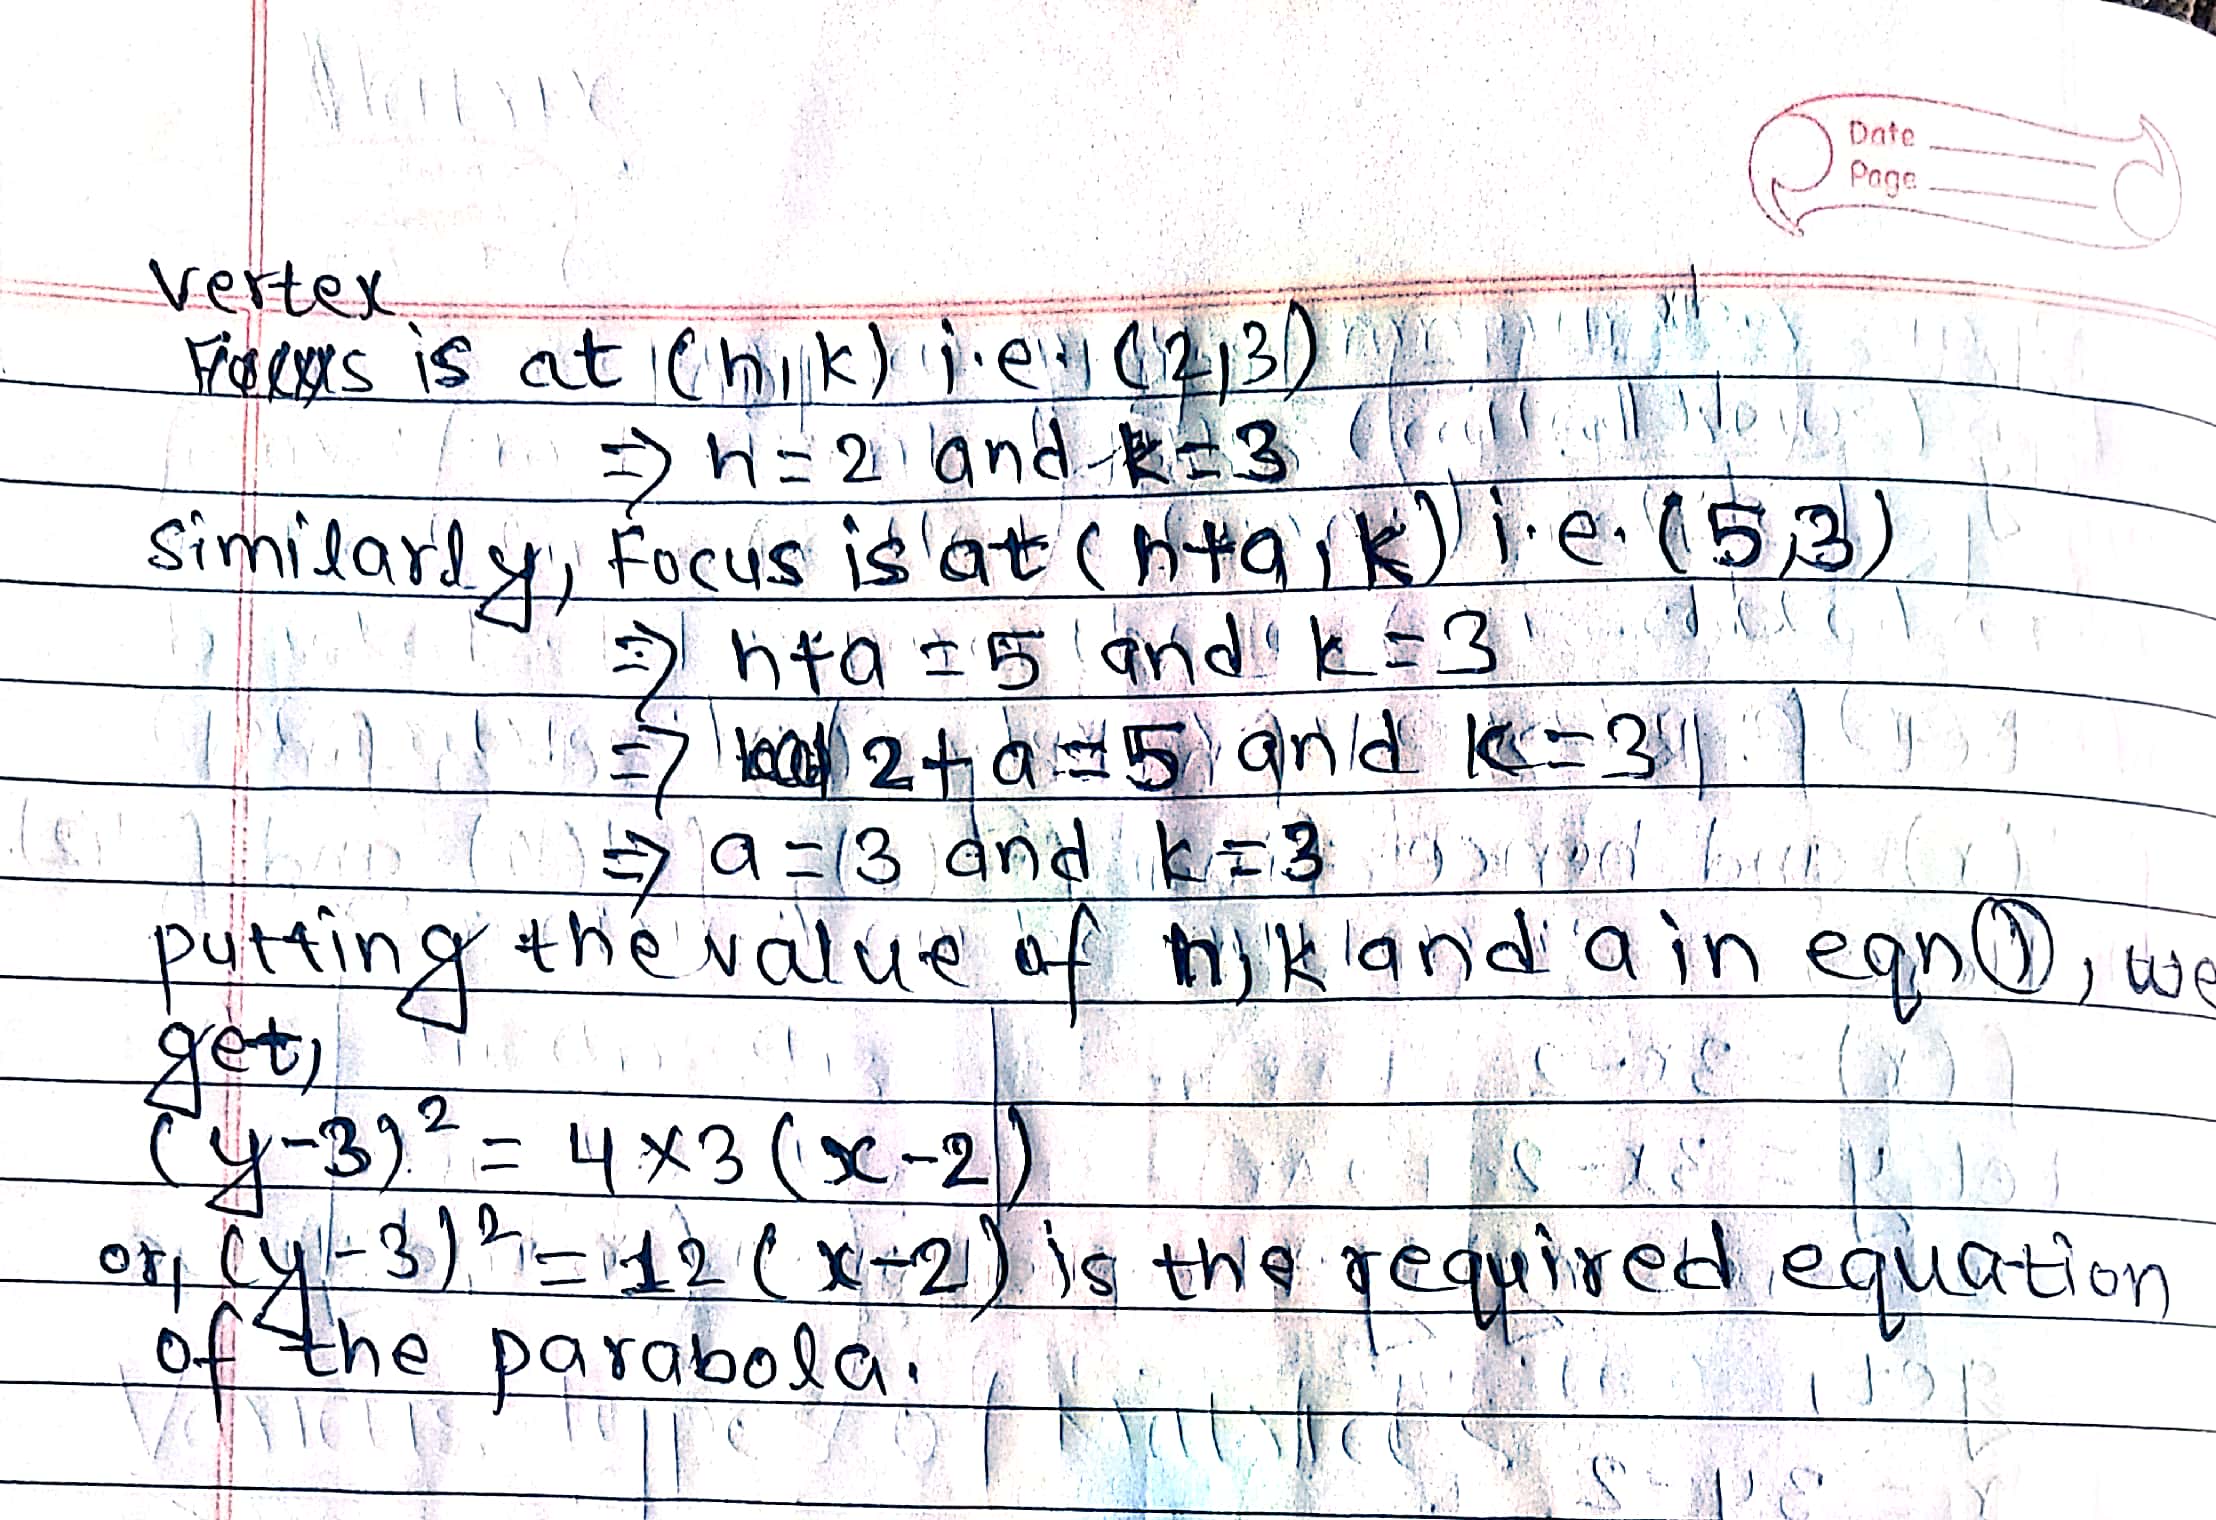 Date
Page
Vertex
is at (h,k) i.e. (2,3)
=> h=2 and k=3
Similarly, Focus is at (h+a,k) i.e. (5,3)
=> h+a=5 and k=3
=> 2+a=5 and k=3
=> a=3 and k=3
putting the value of h,k and a in eqn ①, we
get,
(y-3)² = 4×3(x-2)
or, (y-3)² = 12(x-2) is the required equation
of the parabola.